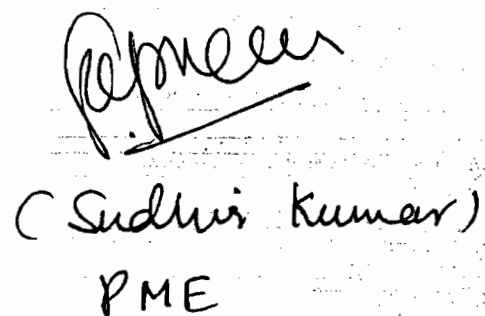 (Sudhir Kumar)
PME